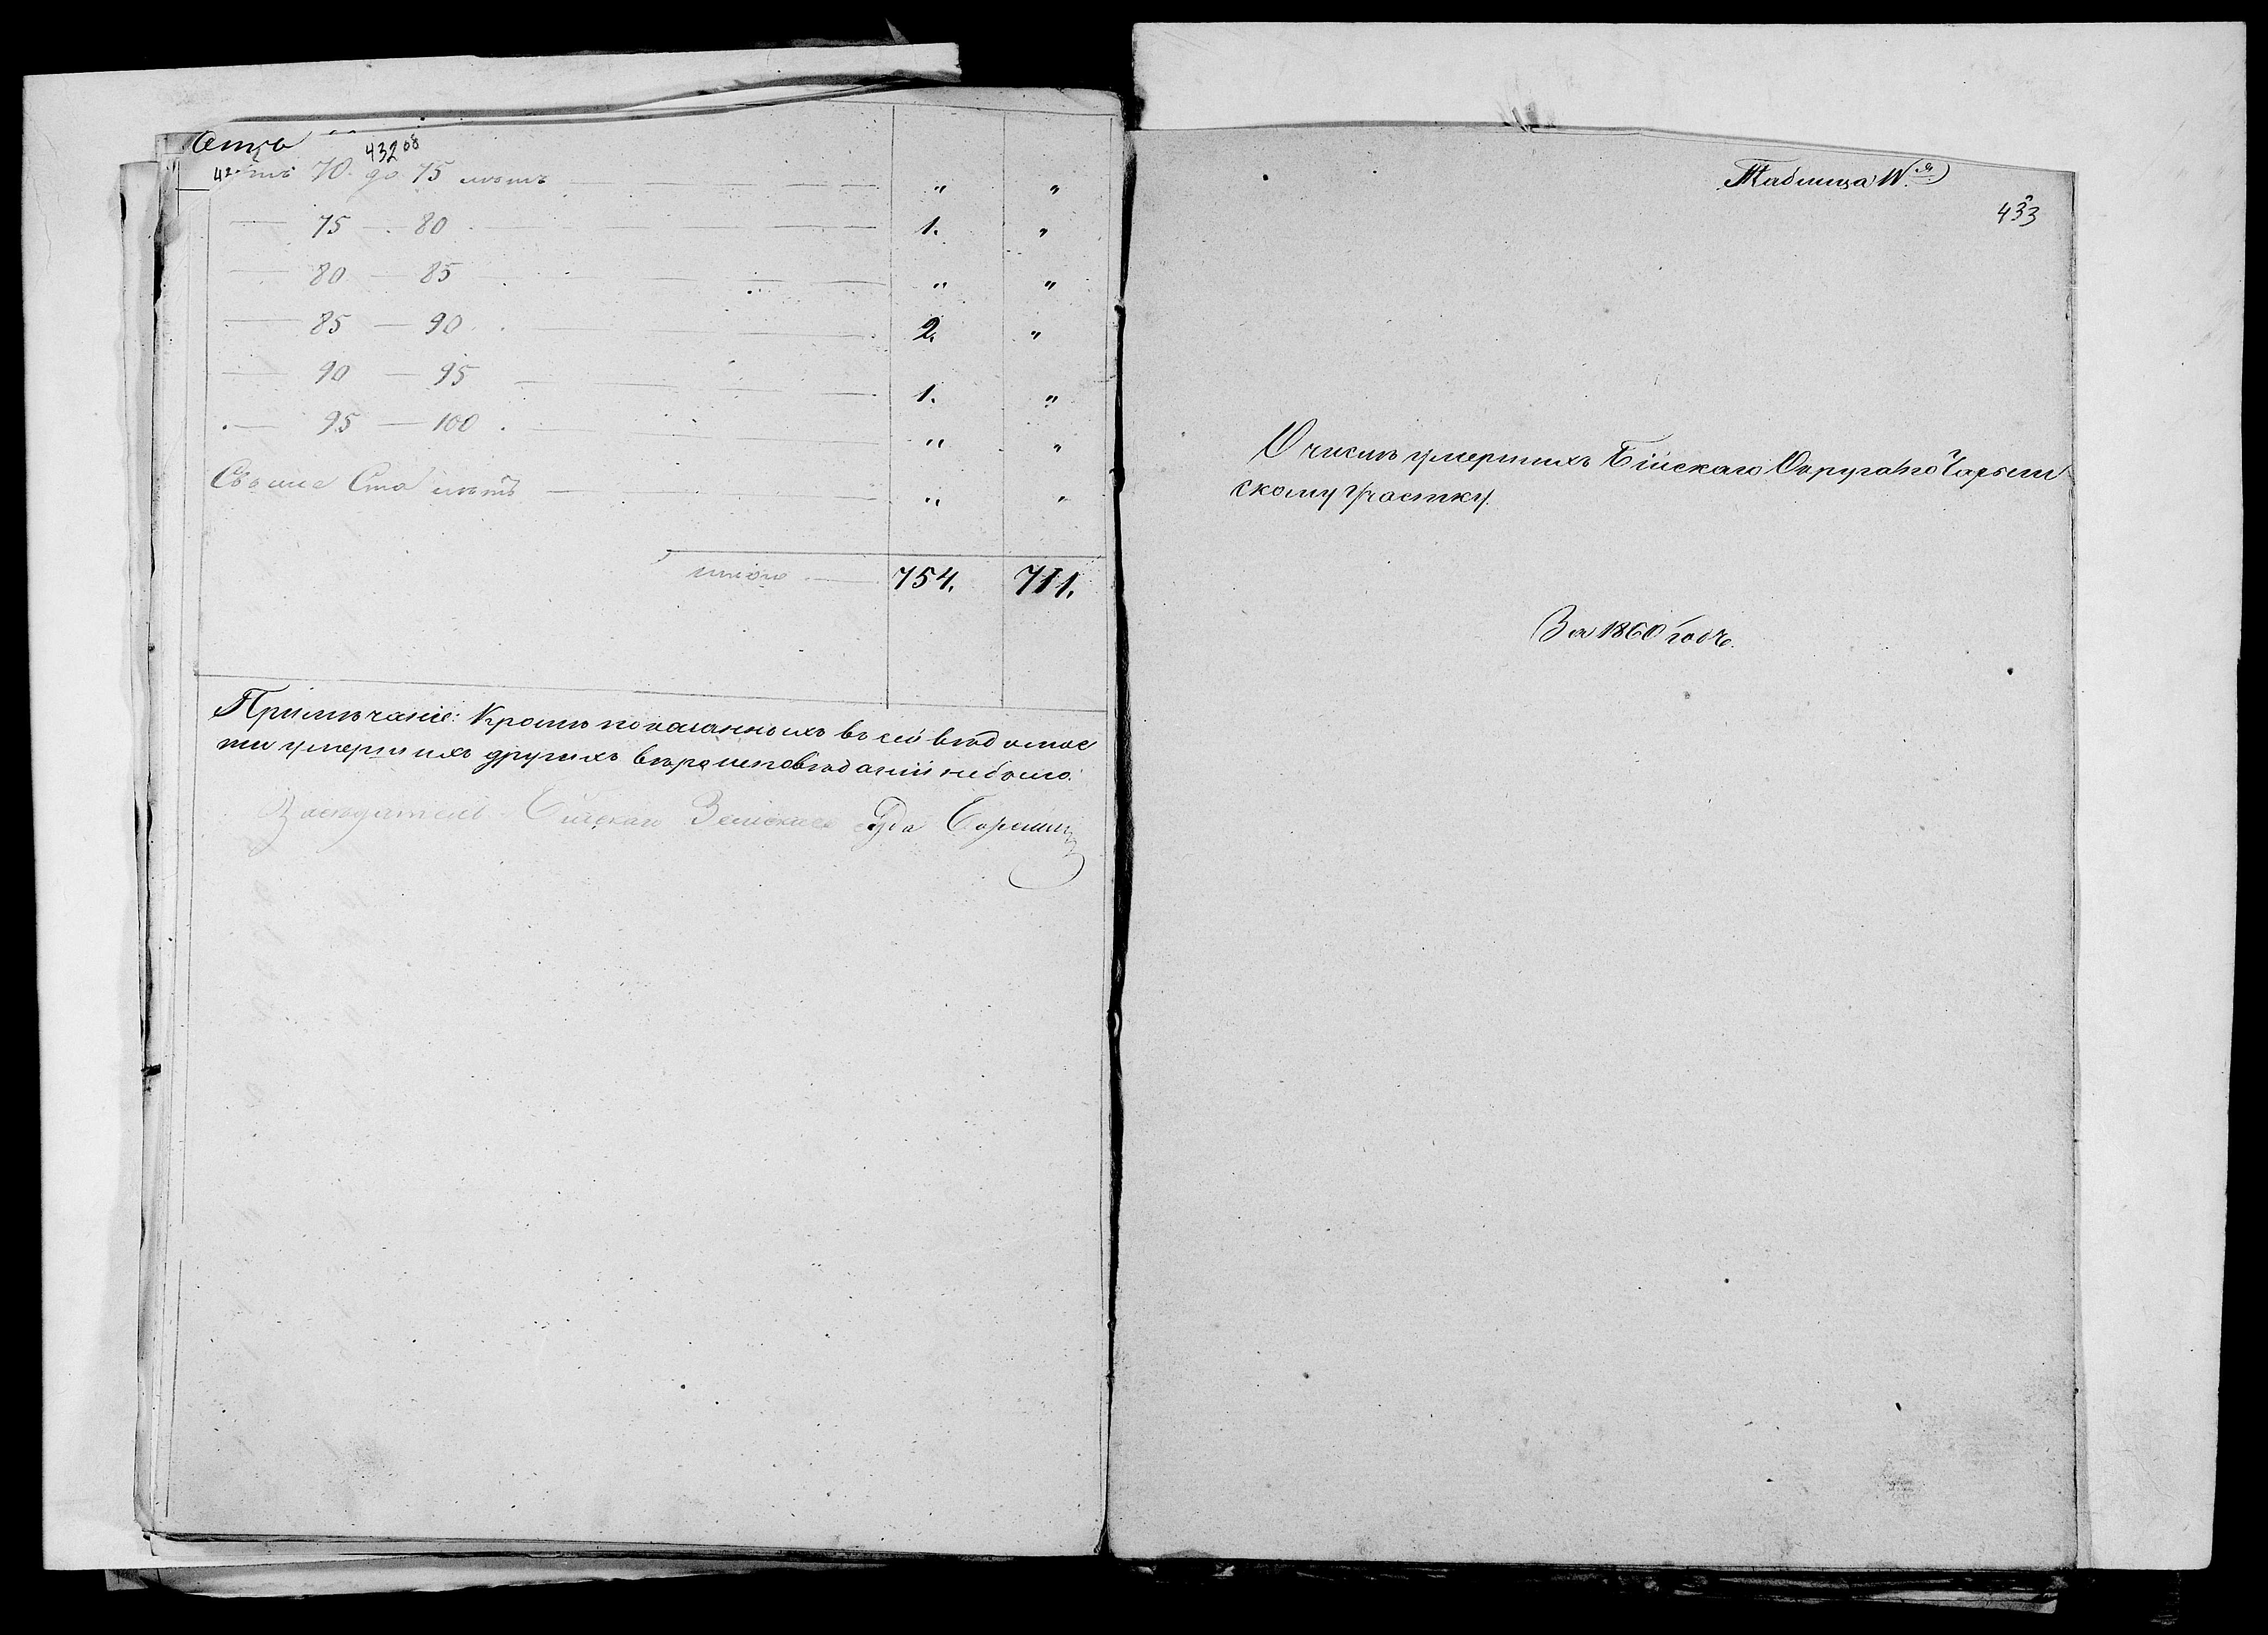 432 об
отъ 70 до 75 лѣтъ — " "
— 75 — 80 — 1. "
— 80 — 85 — " "
— 85 — 90 — 2. "
— 90 — 95 — 1. "
— 95 — 100 — " "
Свыше Ста лѣтъ — " "
итого — 754. 711.
Примѣчаніе: Кромѣ показанныхъ въ сей вѣдомос
ти умершихъ другихъ вѣроисповѣданій небыло.
Засѣдатель Бійскаго Земскаго Суда
Таблица
433
О числѣ умершихъ Бійскаго Округа по Чарыш
скому Участку.
За 1860 годъ.